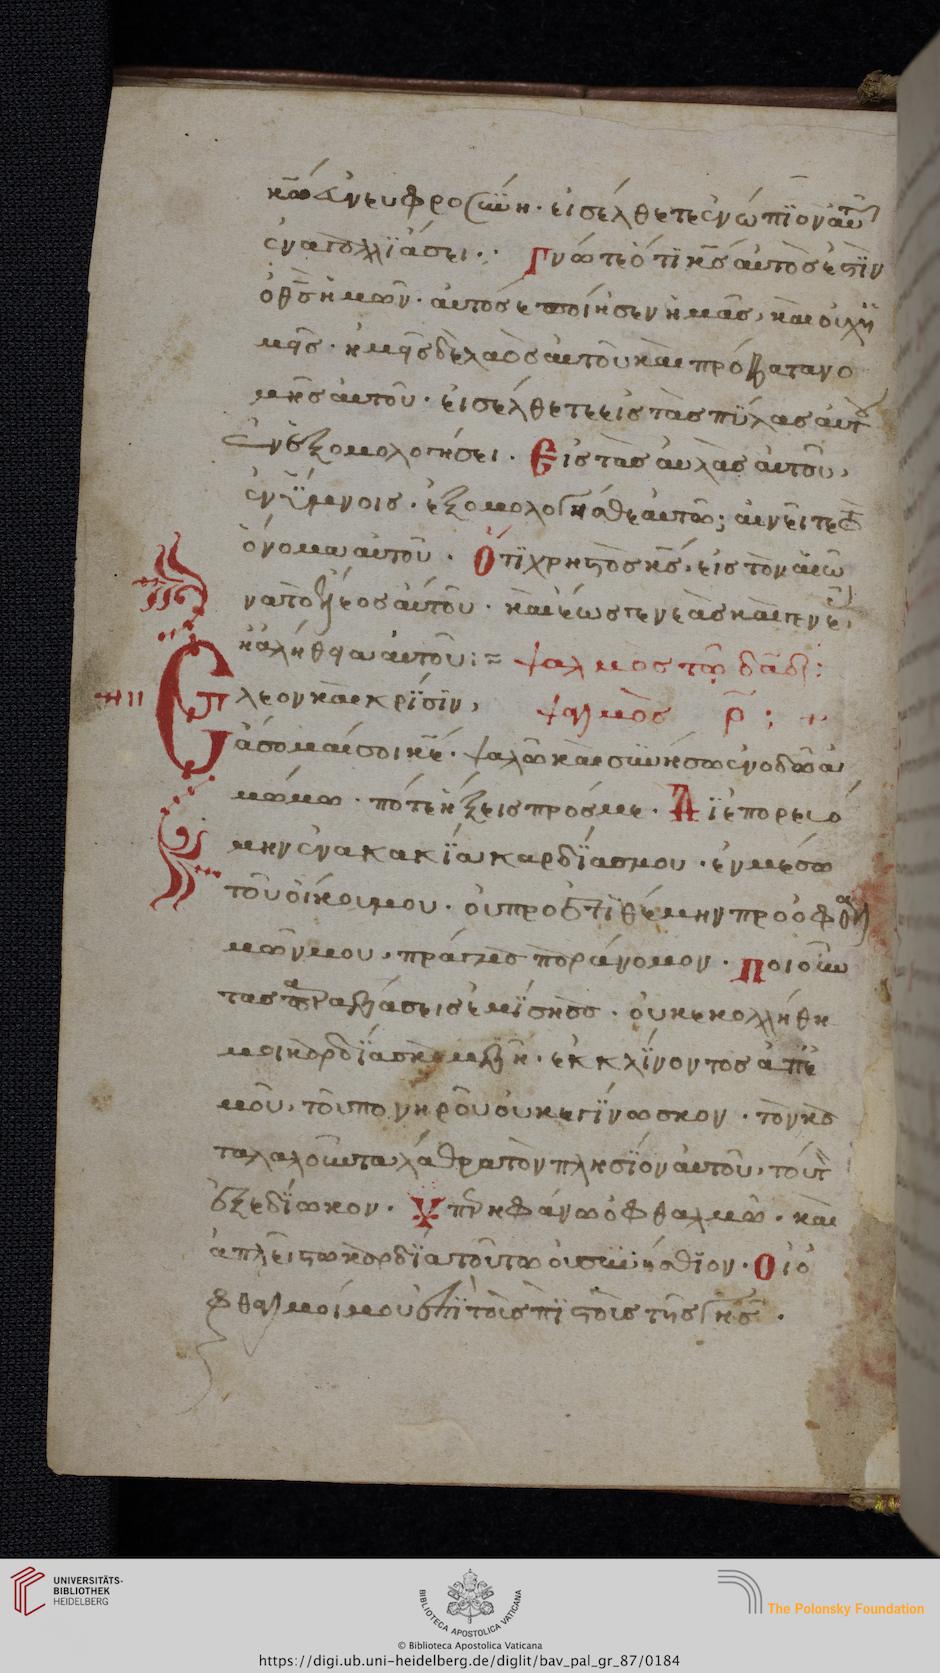 κῶ ἐν ευφροσύνη · εἰσέλθετε ἐνώπϊον αὐτοῦ
ἐν αγαλλϊάσει · Γνῶτε ὅτι κ̅ς̅ αὐτὸς ἐστϊν
ὁ θ̅ς̅ ἡμῶν · αὐτὸς εποίησεν ἡμᾶς, καὶ οὐχ ἡ
μεῖς · ἡμεῖς δὲ λαὸς αὐτοῦ καὶ πρόβατα νο
μῆς αὐτοῦ · εἰσέλθετε εἰς τὰς πύλας αὐτοῦ
ἐν ἐξομολογήσει · Εἰς τὰς αυλὰς αὐτοῦ,
ἐν ὕμνοις · ἐξομολογεῖσθε αὐτῶ; αἰνεῖτε τὸ
ὄνομα αὐτοῦ · Ὅτϊ χρηστὸς κ̅ς̅, εἰς τὸν αἰῶ
να τὸ ἔλεος αὐτοῦ · καὶ ἕως γενεᾶς καὶ γενεᾶς
ἡ ἀλήθεια αὐτοῦ: = ψαλμος τῶ δα̅δ̅:
λεον καὶ κρίσϊν, ψαλμὸς ρ̅ ;
ἄσομαί σοι κ̅ε̅ · ψαλῶ καὶ συνήσω ἐν οδῶ ἀ
μώμω · πότε ἥξεις πρός με · Δϊεπορευό
μην ἐν ακακία καρδίας μου · ἐν μέσω
τοῦ οἴκου μου · οὐ προετϊθέμην πρὸ ὀφθαλ
μῶν μου, πράγμα παράνομον · Ποιοῦν
τας παραβάσεις ἐμίσησα · οὐκ εκολλήθη
μοι καρδία σκαμβὴ · ἐκκλίνοντος ἀπ' ἐ
μοῦ, τοῦ πονηροῦ οὐκ εγίνωσκον · τὸν κα
ταλαλοῦντα λάθρα τὸν πλησίον αὐτοῦ, τοῦτον
ἐξεδίωκον · Ὑπερηφάνω ὀφθαλμῶ · καὶ
ἀπλείστω καρδία τούτω οὐ συνήσθιον · Οἱ ὀ
φθαλμοί μου ἐπὶ τοὺς πιστοὺς τῆς γῆς ·
UNIVERSITÄTS-
BIBLIOTHEK
HEIDELBERG
BIBLIOTECA APOSTOLICA VATICANA
The Polonsky Foundation
© Biblioteca Apostolica Vaticana
https://digi.ub.uni-heidelberg.de/diglit/bav_pal_gr_87/0184